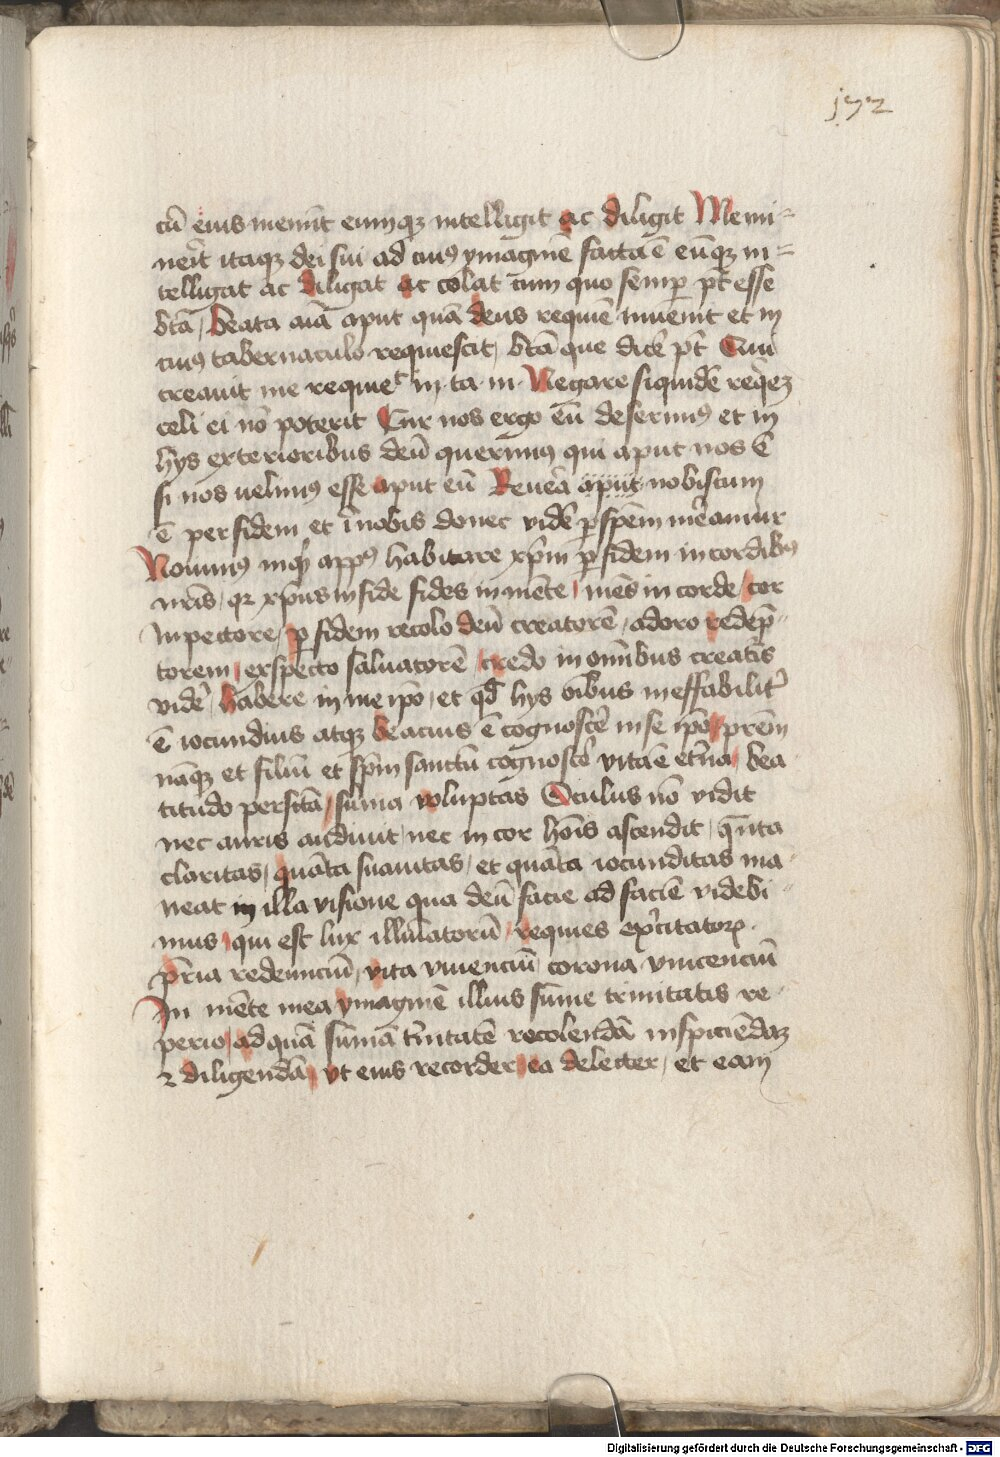 172
cū eius meminit eumqȝ intelligit ac diligit Memi=
nerit itaqȝ dei sui ad cuiꝰ ymaginē facta ē eūqȝ in=
telligat ac diligat ac colat cum quo semꝑ pt̄ esse
btā / Beata aīa aput quā deus requiē inuenit et in
cuiꝰ tabernaculo requiescit / btā que dicē pt̄ Qui
creauit me requieᵗ in ta m Negare siquidē req̄eȝ
celi ei nō poterit Cur nos ergo eū deserimꝰ et in
hys exterioribus deū querimꝰ qui aput nos ē
si nos uelimꝰ esse aput eū Reuēa aput nobiscum
ē per fidem et ī nobis donec vidē ꝑ spēm mēamur
Nouimꝰ inqͥ appꝰ habitare xp̄m ꝑ fidem in cordibꝰ
nr̄is / qr xp̄us in fide fides in mēte / mēs in corde / cor
In pectore / ꝑ fidem recolo deū creatorē / adoro redēp=
torem / exspecto saluatorē / credo in om̄ibus creatīs
vidē / habere in me ip̄o / et qd̄ hys oībus ineffabilitʾ
ē iocundius atqȝ beacius ē cognoscē in se ip̄o / prēm
nāqȝ et filiū et sp̄m sanctū cognoscē vita ē et̄na / bea
titudo perfctā / sūma voluptas Oculus nō vidit
nec auris audiuit / nec in cor hoīs ascendit / qͣnta
claritas / quāta suauitas / et quāta iocunditas ma
neat in illa visione qua deū facie ad faciē videbi
mus / qui est lux illuīatorū / requies exʾcitatoꝝ.
p̄ria redeunciū / vita viuenciū corona vincenciū
In mēte mea ymaginē illius sūme trinitatis re
perio / ad quā sūmā tʾnitatē recolendā inspiciēdaȝ
⁊ diligendā / vt eius recorder / ea delecter / et eam
Digitalisierung gefördert durch die Deutsche Forschungsgemeinschaft - DFG